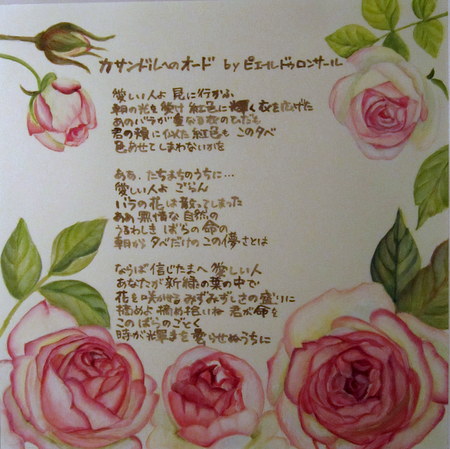 カサンドルへのオード by ピエールドゥロンサール
愛しい人よ 見に行かない
朝の光を受け 紅色に輝く衣を広げた
あのバラが
君の頬に似た紅色も この夕べ
色あせてしまわないかを
ああ、たちまちのうちに…
愛しい人よ ごらん
バラの花は散ってしまった
ああ 無情な 自然の
うるわしき ばらの 命の
朝から 夕べだけの この儚さとは
ならば 信じたまへ 愛しい人
あなたが 新緑の葉の中で
花を咲かせる みずみずしさの盛りに
摘めよ 摘め 拾いね 君が命を
この ばらのごとく
時が輝きを 曇らせぬうちに